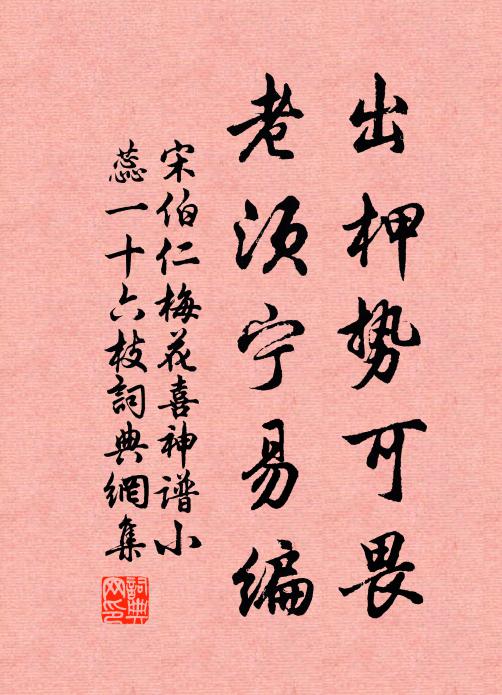 出柙势可畏
老须宁易编
宋伯仁梅花喜神谱小
蕊一十六枝詞典網集
詞典網印